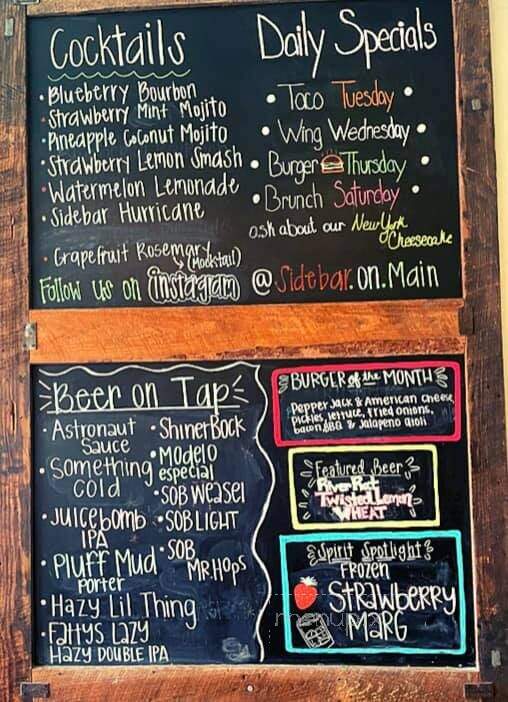 Cocktails
• Blueberry Bourbon
• Strawberry Mint Mojito
• Pineapple Coconut Mojito
• Strawberry Lemon Smash
• Watermelon Lemonade
• Sidebar Hurricane
• Grapefruit Rosemary
(Mocktail)
Daily Specials
• Taco Tuesday •
• Wing Wednesday •
• Burger Thursday •
• Brunch Saturday •
ask about our New York
Cheesecake
Follow us on instagram @Sidebar.on.Main
Beer on Tap
• Astronaut
Sauce
• Something
Cold
• Juicebomb
IPA
• Pluff Mud
Porter
• Hazy Lil Thing
• Fattys Lazy
Hazy Double IPA
• Shiner Bock
• Modelo
especial
• SOB Weasel
• SOB Light
• SOB
Mr. Hops
Burger of the Month
Pepper Jack & American cheese,
pickles, lettuce, fried onions,
bacon BBQ & Jalapeno aioli
Featured Beer
River Rat
Twisted Lemon
Wheat
Spirit Spotlight
Frozen
Strawberry
Marg